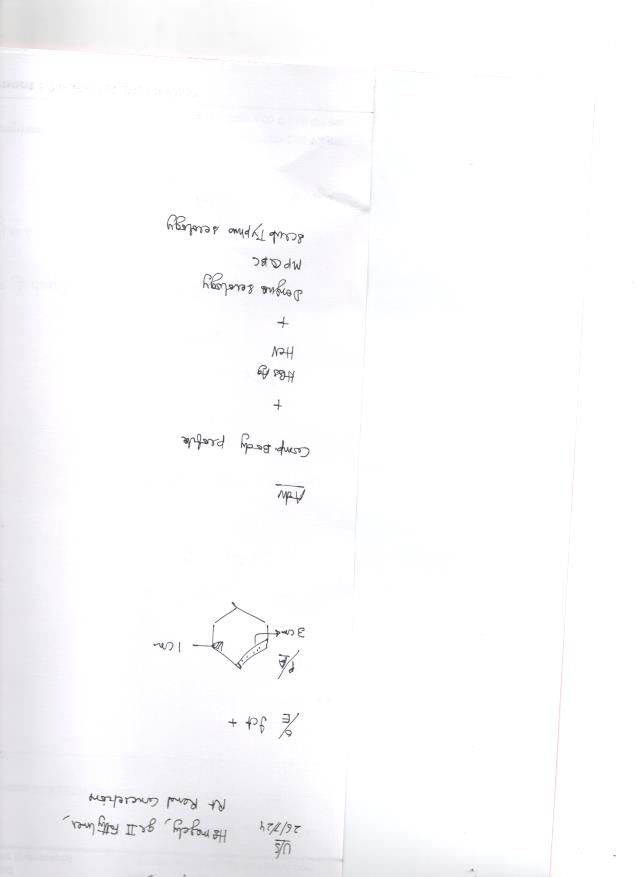 U/S
26/7/24 Hemegaly, gr II Fatty liver,
Rt Renal Concretion
O/E Jct +
P/A
3 cm
1 cm
Adv
Comp. Body profile
+
HBsAg
HCV
+
Dengue serology
MP QBC
Scrub Typhus serology